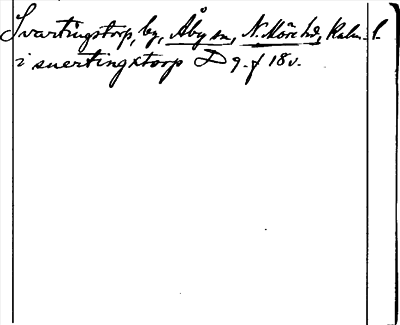 Svartingstorp, by, Åby sn, N. Möre hd, Kalm. l.
i suertingxtorp D 9. f 18v.